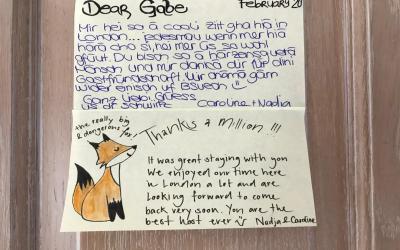 Dear Gabe
February 20
Mir hei so ä cooli Ziit gha hiä in
London... jedesmau wenn mer hiä
härä cho si, hei mer üs so wohl
gfüut. Du bisch so ä härzensgueta
Mönsch und mir dankä dir für dini
Gastfründschaft. Mir chömä gärn
wider einisch uf Bsuech
Ganz liebi Grüess
us dr Schwiiz
Caroline + Nadja
the really big
& dangerous fox!
Thanks a million !!!
It was great staying with you
We enjoyed our time here
in London a lot and are
looking forward to come
back very soon. You are the
best host ever
Nadja & Caroline